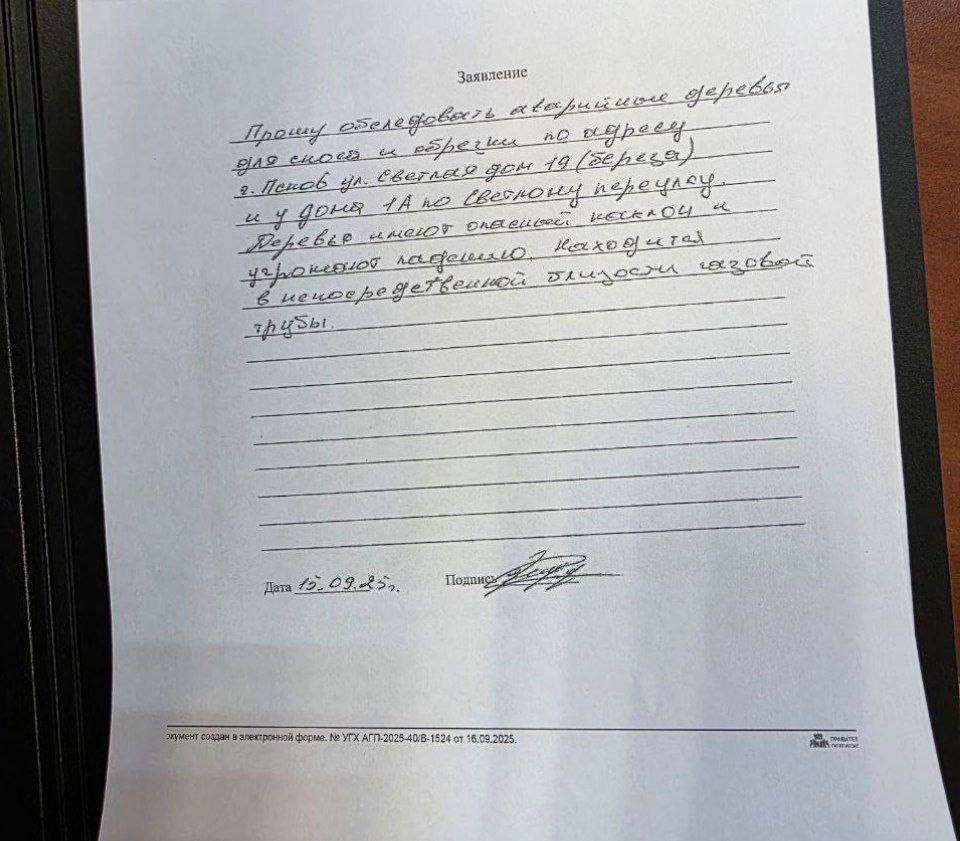 Заявление
Прошу обследовать аварийные деревья
для сноса и обрезки по адресу
г. Псков ул. Светлая дом 19 (береза)
и у дома 1А по Светному переулку.
Деревья имеют опасный наклон и
угрожают падению. Находится
в непосредственной близости газовой
трубы.
Дата 15.09.25г. Подпись
окумент создан в электронной форме. № УГХ АГП-2025-40/В-1524 от 16.09.2025.